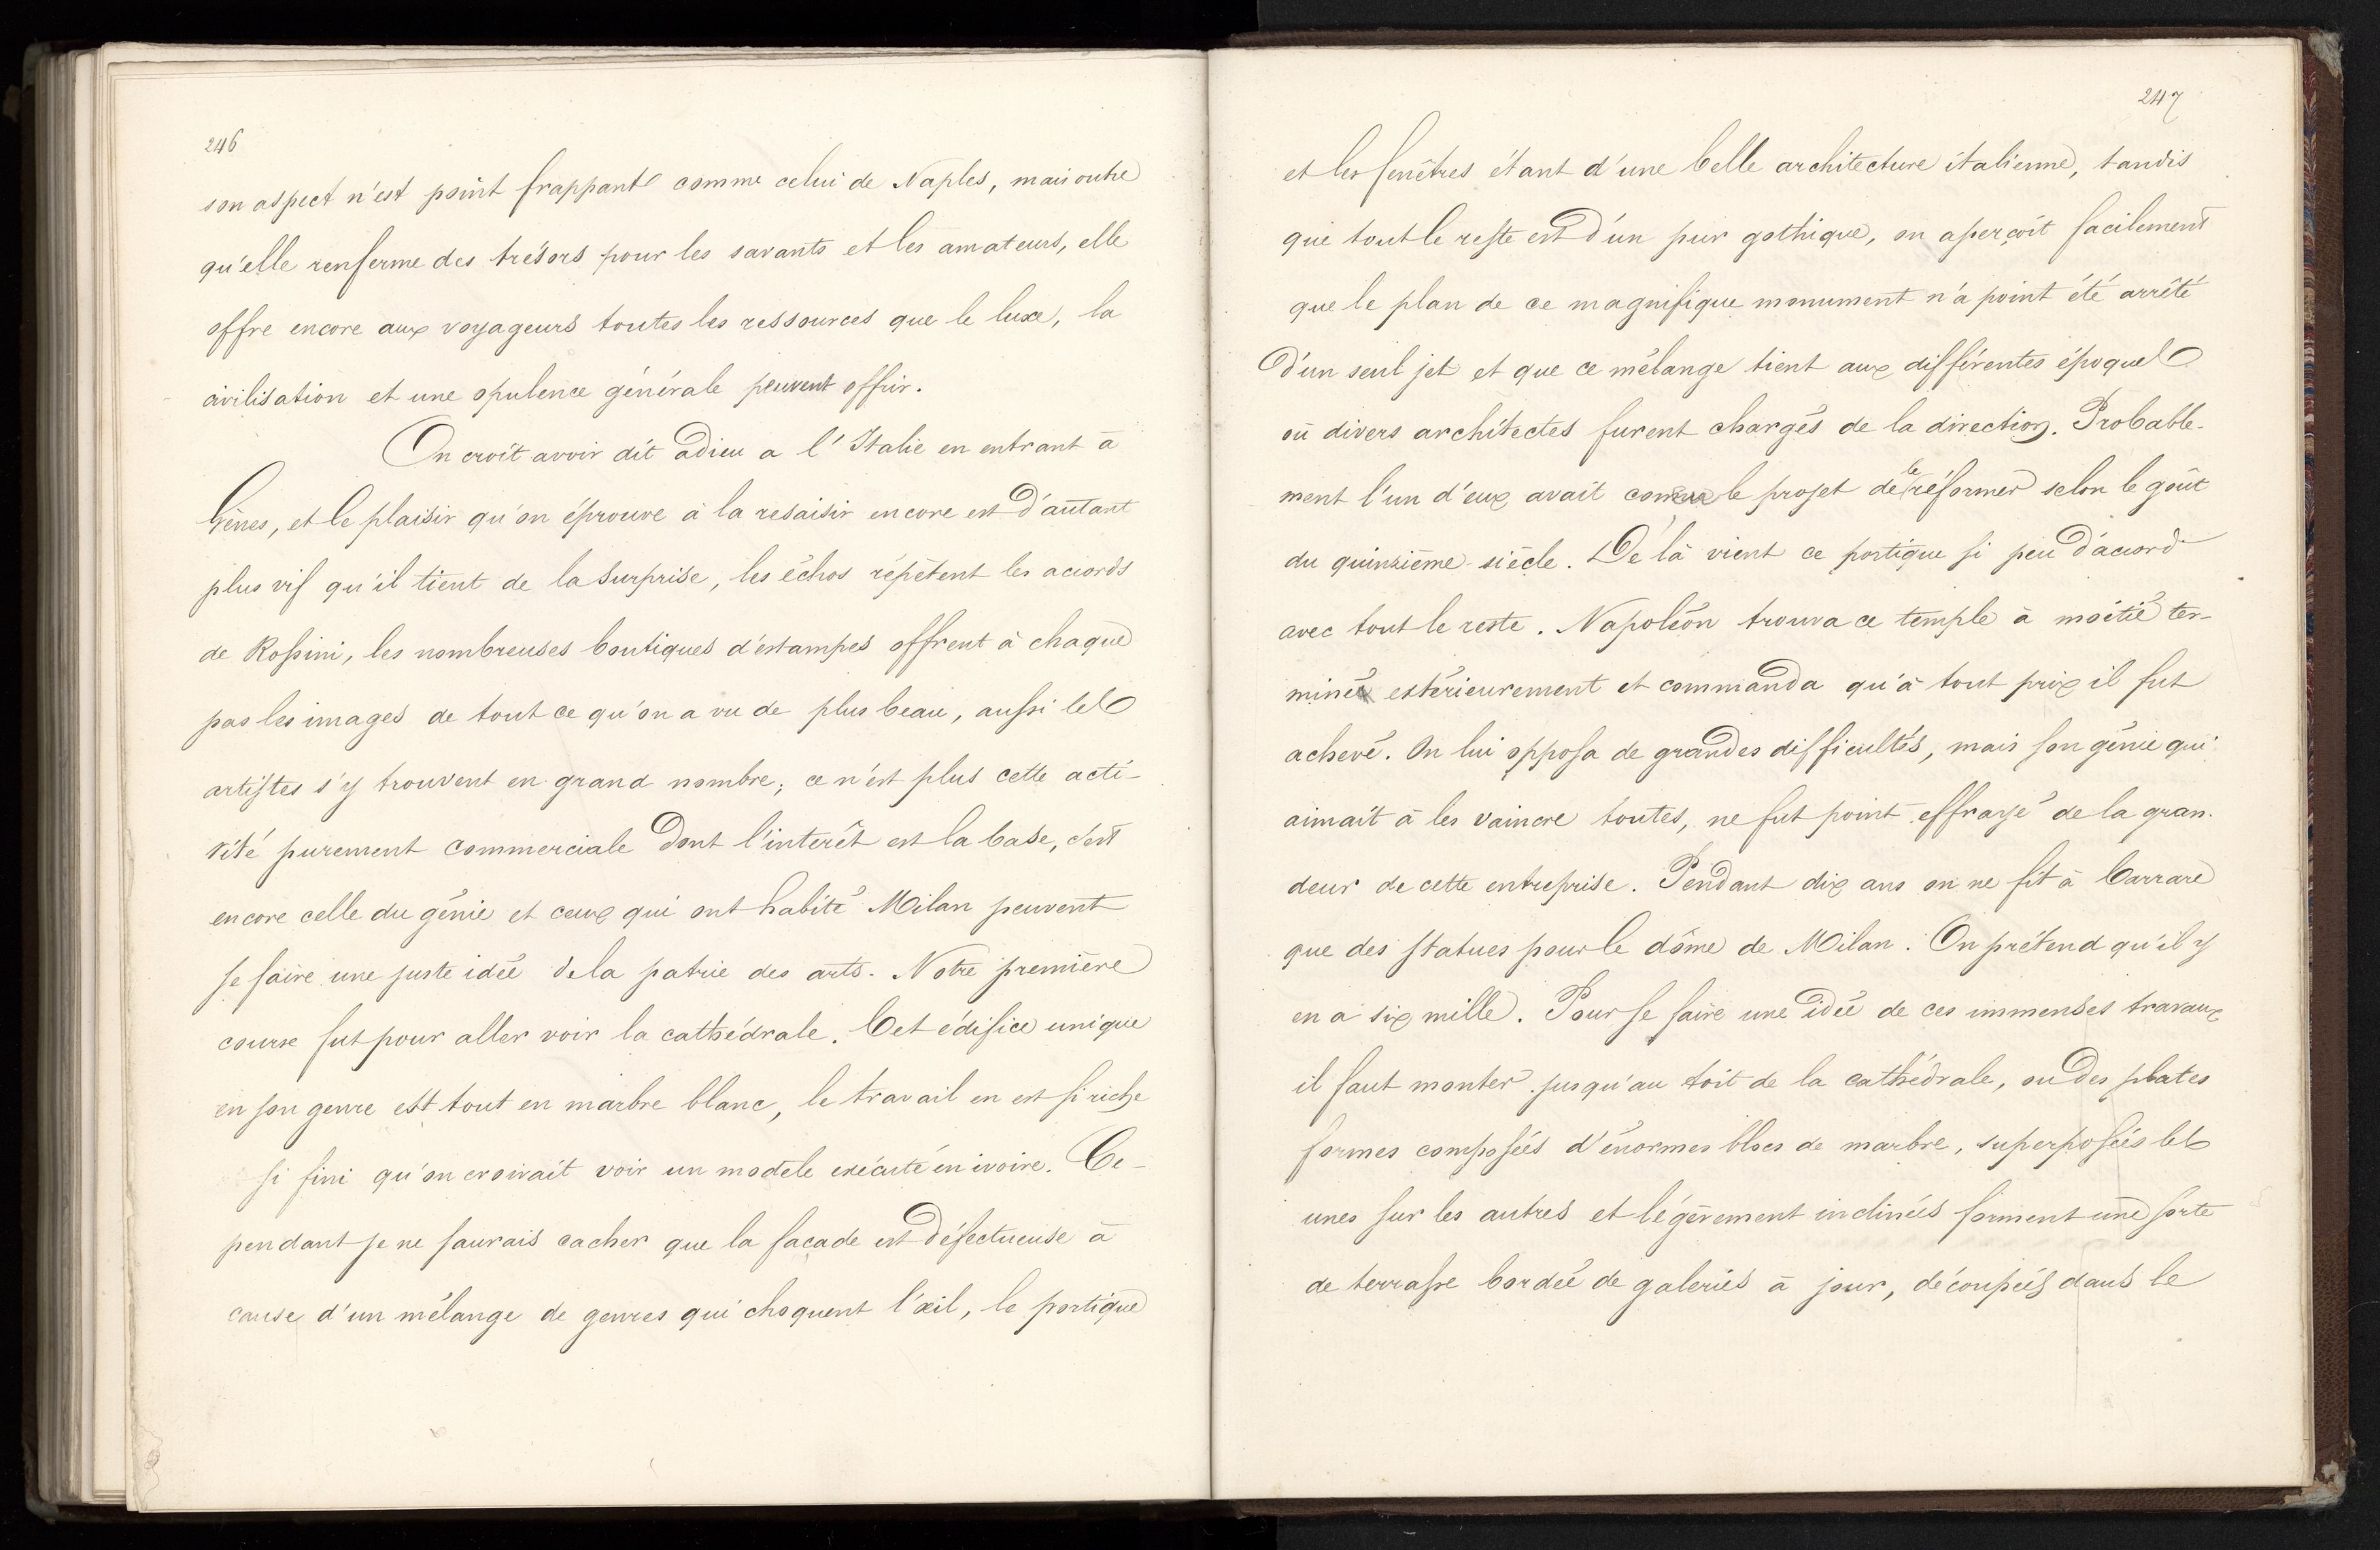 246
son aspect n'est point frappant comme celui de Naples, mais outre
qu'elle renferme des trésors pour les savants et les amateurs, elle
offre encore aux voyageurs toutes les ressources que le luxe, la
civilisation et une opulence générale peuvent offrir.
On croit avoir dit adieu a l'Italie en entrant à
Gènes, et le plaisir qu'on éprouve à la resaisir encore est d'autant
plus vif qu'il tient de la surprise, les échos répètent les accords
de Rossini, les nombreuses boutiques d'estampes offrent à chaque
pas les images de tout ce qu'on a vu de plus beau, aussi les
artistes s'y trouvent en grand nombre; ce n'est plus cette acti-
vité purement commerciale dont l'interêt est la base, c'est
encore celle du génie et ceux qui ont habité Milan peuvent
se faire une juste idée de la patrie des arts. Notre première
course fut pour aller voir la cathédrale. Cet édifice unique
en son genre est tout en marbre blanc, le travail en est si riche
si fini qu'on croirait voir un modele exécuté en ivoire. Ce-
pendant je ne saurais cacher que la façade est défectueuse à
cause d'un mélange de genres qui choquent l'œil, le portique
247
et les fenêtres étant d'une belle architecture italienne, tandis
que tout le reste est d'un pur gothique, on aperçoit facilement
que le plan de ce magnifique monument n'a point été arrêté
d'un seul jet et que ce mélange tient aux différentes époques
où divers architectes furent chargés de la direction. Probable-
ment l'un d'eux avait le projet de le réformer selon le goût
du quinzième siècle. De là vient ce portique si peu d'accord
avec tout le reste. Napoléon trouva ce temple à moitié ter-
miné extérieurement et commanda qu'à tout prix il fut
achevé. On lui opposa de grandes difficultés, mais son génie qui
aimait à les vaincre toutes, ne fut point effrayé de la gran-
deur de cette entreprise. Pendant dix ans on ne fit à Carrare
que des statues pour le dôme de Milan. On prétend qu'il y
en a six mille. Pour se faire une idée de ces immenses travaux
il faut monter jusqu'au toit de la cathédrale, ou des plates
formes composées d'énormes blocs de marbre, superposées les
unes sur les autres et légèrement inclinées forment une sorte
de terrasse bordée de galeries à jour, découpées dans le